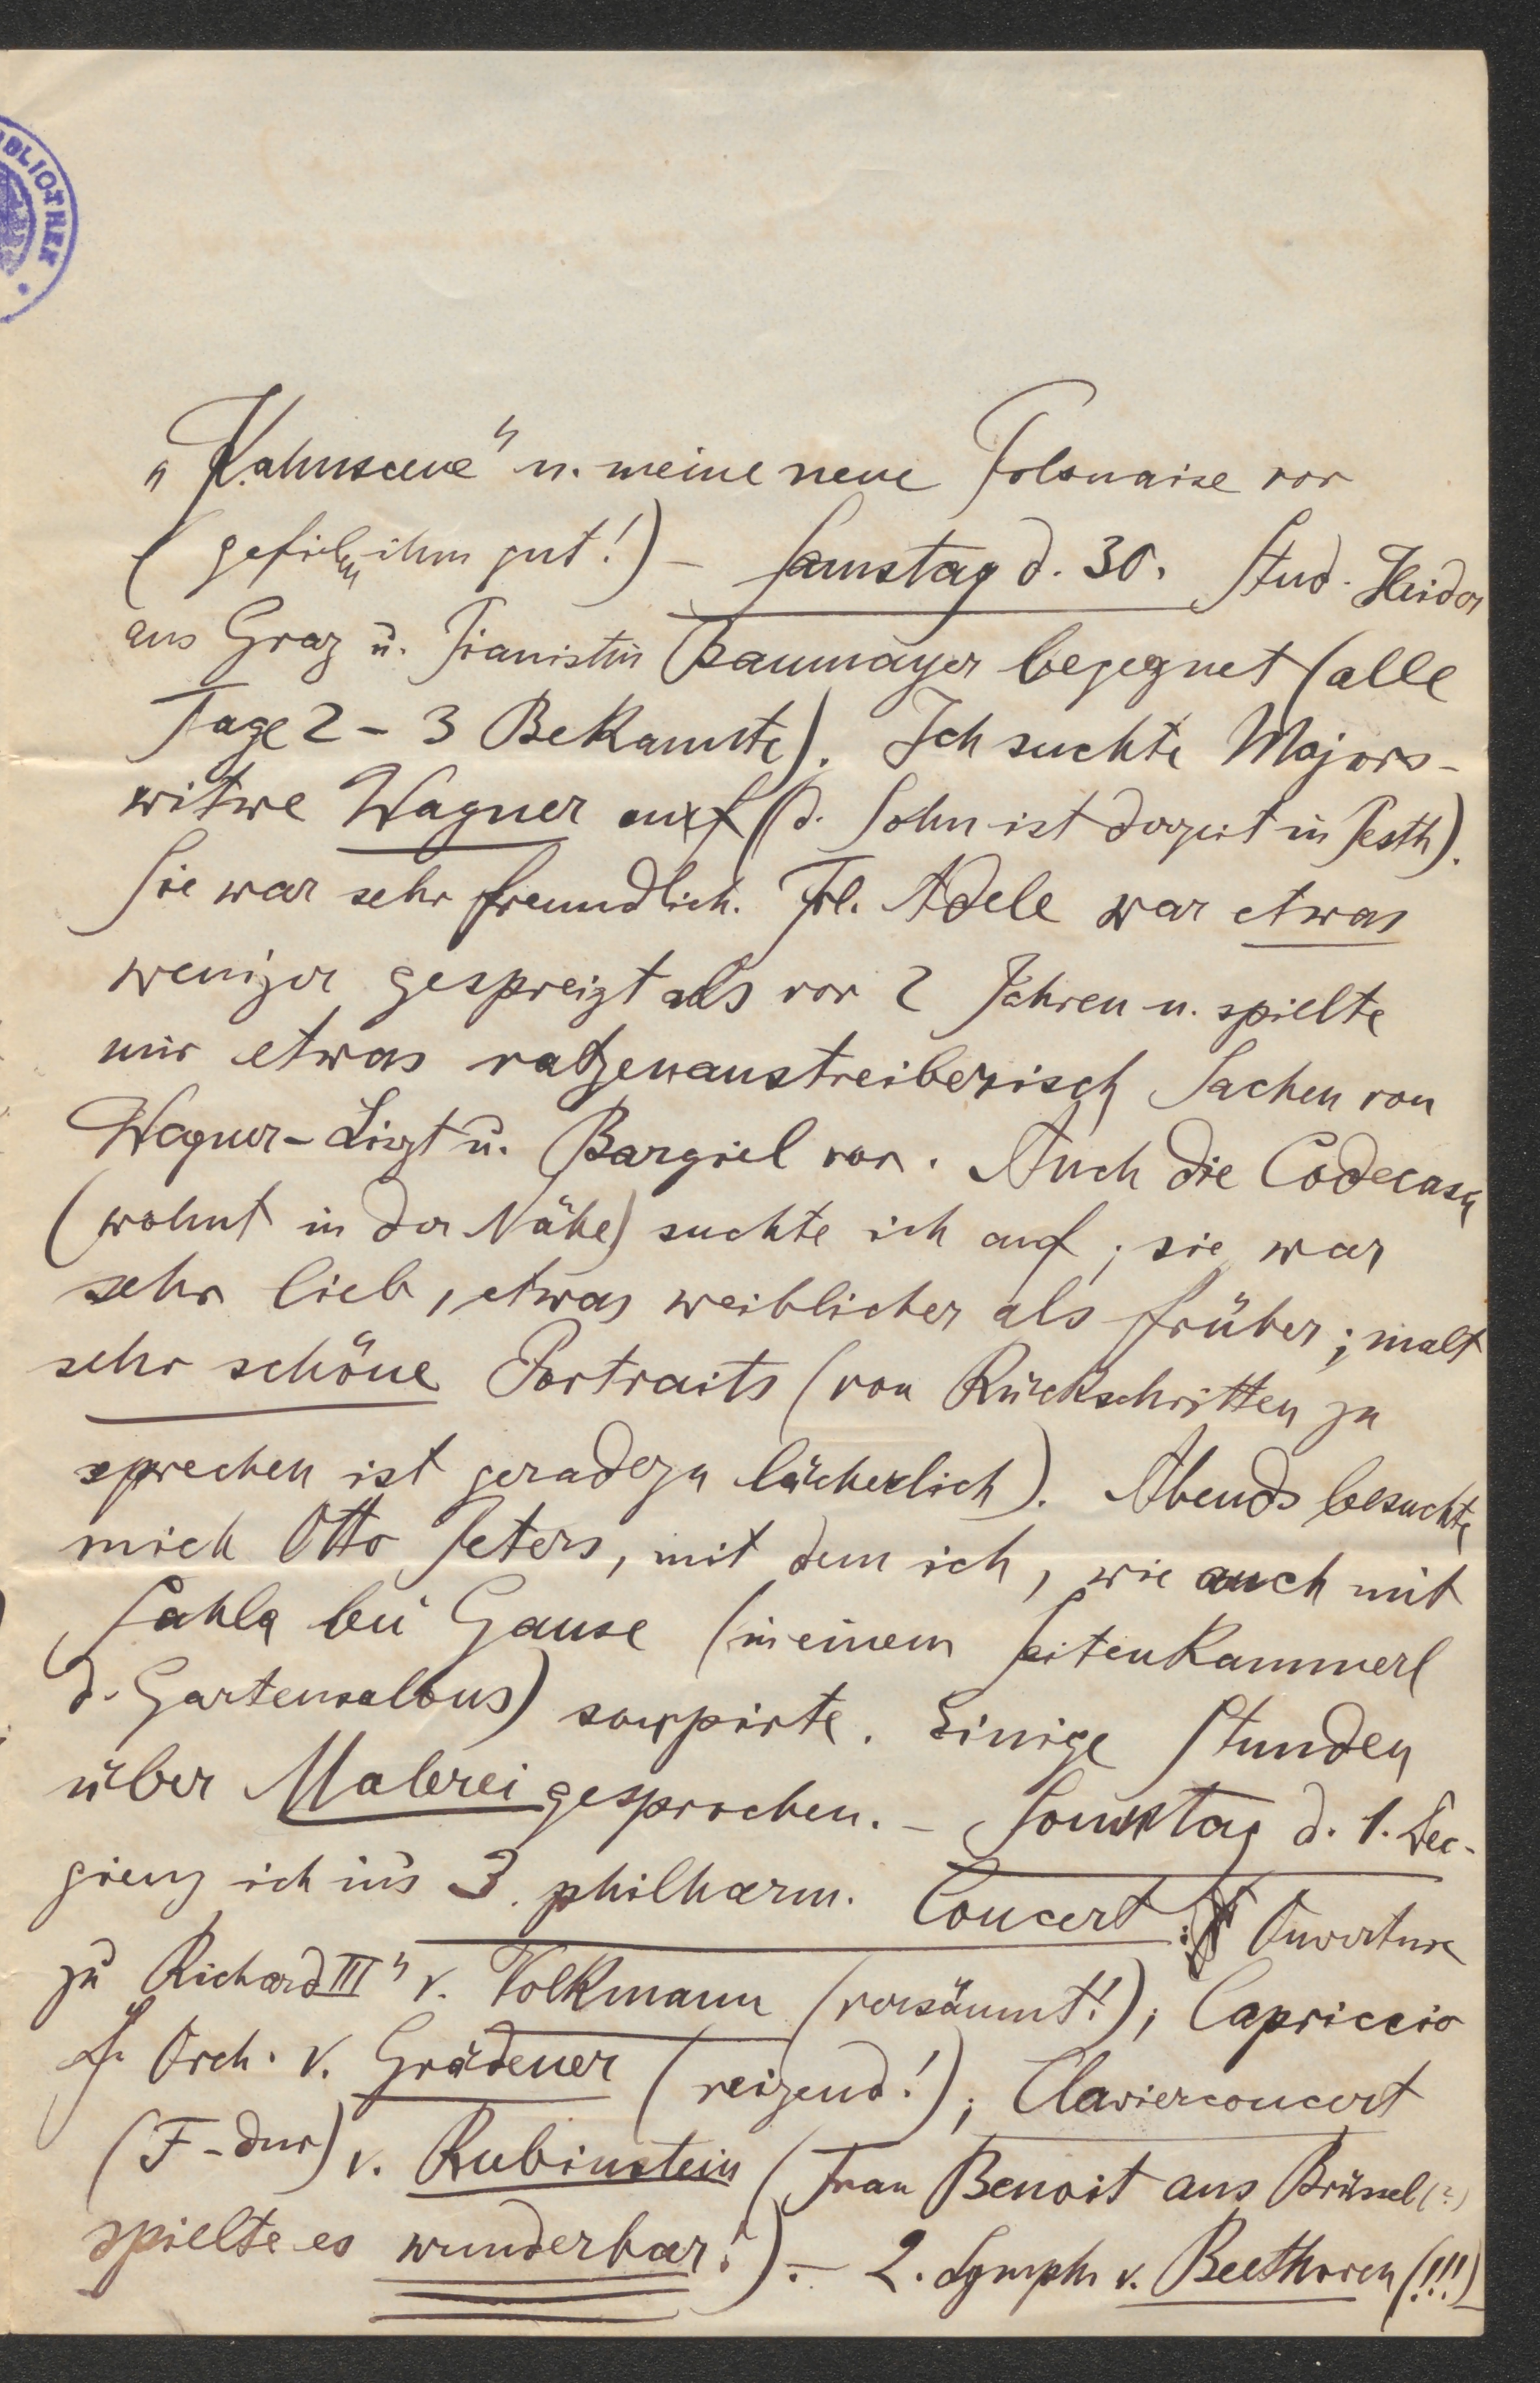 BLIOTHEK
„Kahnscene“ u. meine neue Polonaise vor
(gefielen ihm gut!) – Samstag d. 30. Stud. Heider
aus Graz u. Pianistin Baumayer begegnet (alle
Tage 2 – 3 Bekannte). Ich suchte Majors-
witwe Wagner auf (d. Sohn ist derzeit in Pesth).
Sie war sehr freundlich. Frl. Adele war etwas
weniger gespreizt als vor 2 Jahren u. spielte
mir etwas ratzenaustreiberisch Sachen von
Wagner-Liszt u. Bargiel vor. Auch die Codecasa
(wohnt in der Nähe) suchte ich auf; sie war
sehr lieb, etwas weiblicher als früher; malt
sehr schöne Portraits (von Rückschritten zu
sprechen ist geradezu lächerlich). Abends besuchte
mich Otto Peters, mit dem ich, wie auch mit
Sahla bei Gause (in einem Seitenkammerl
d. Gartensalons) soupirte. Einige Stunden
über Malerei gesprochen. – Sonntag d. 1. Dec.
gieng ich in's 3. philharm. Concert: Ouverture
zu Richard III“ v. Volkmann (versäumt!); Capriccio
f. Orch. v. Grädener (reizend!); Clavierconcert
(F-dur) v. Rubinstein (Frau Benoit aus Brüssel (?)
spielte es wunderbar!). – 2. Symph. v. Beethoven (!!!)